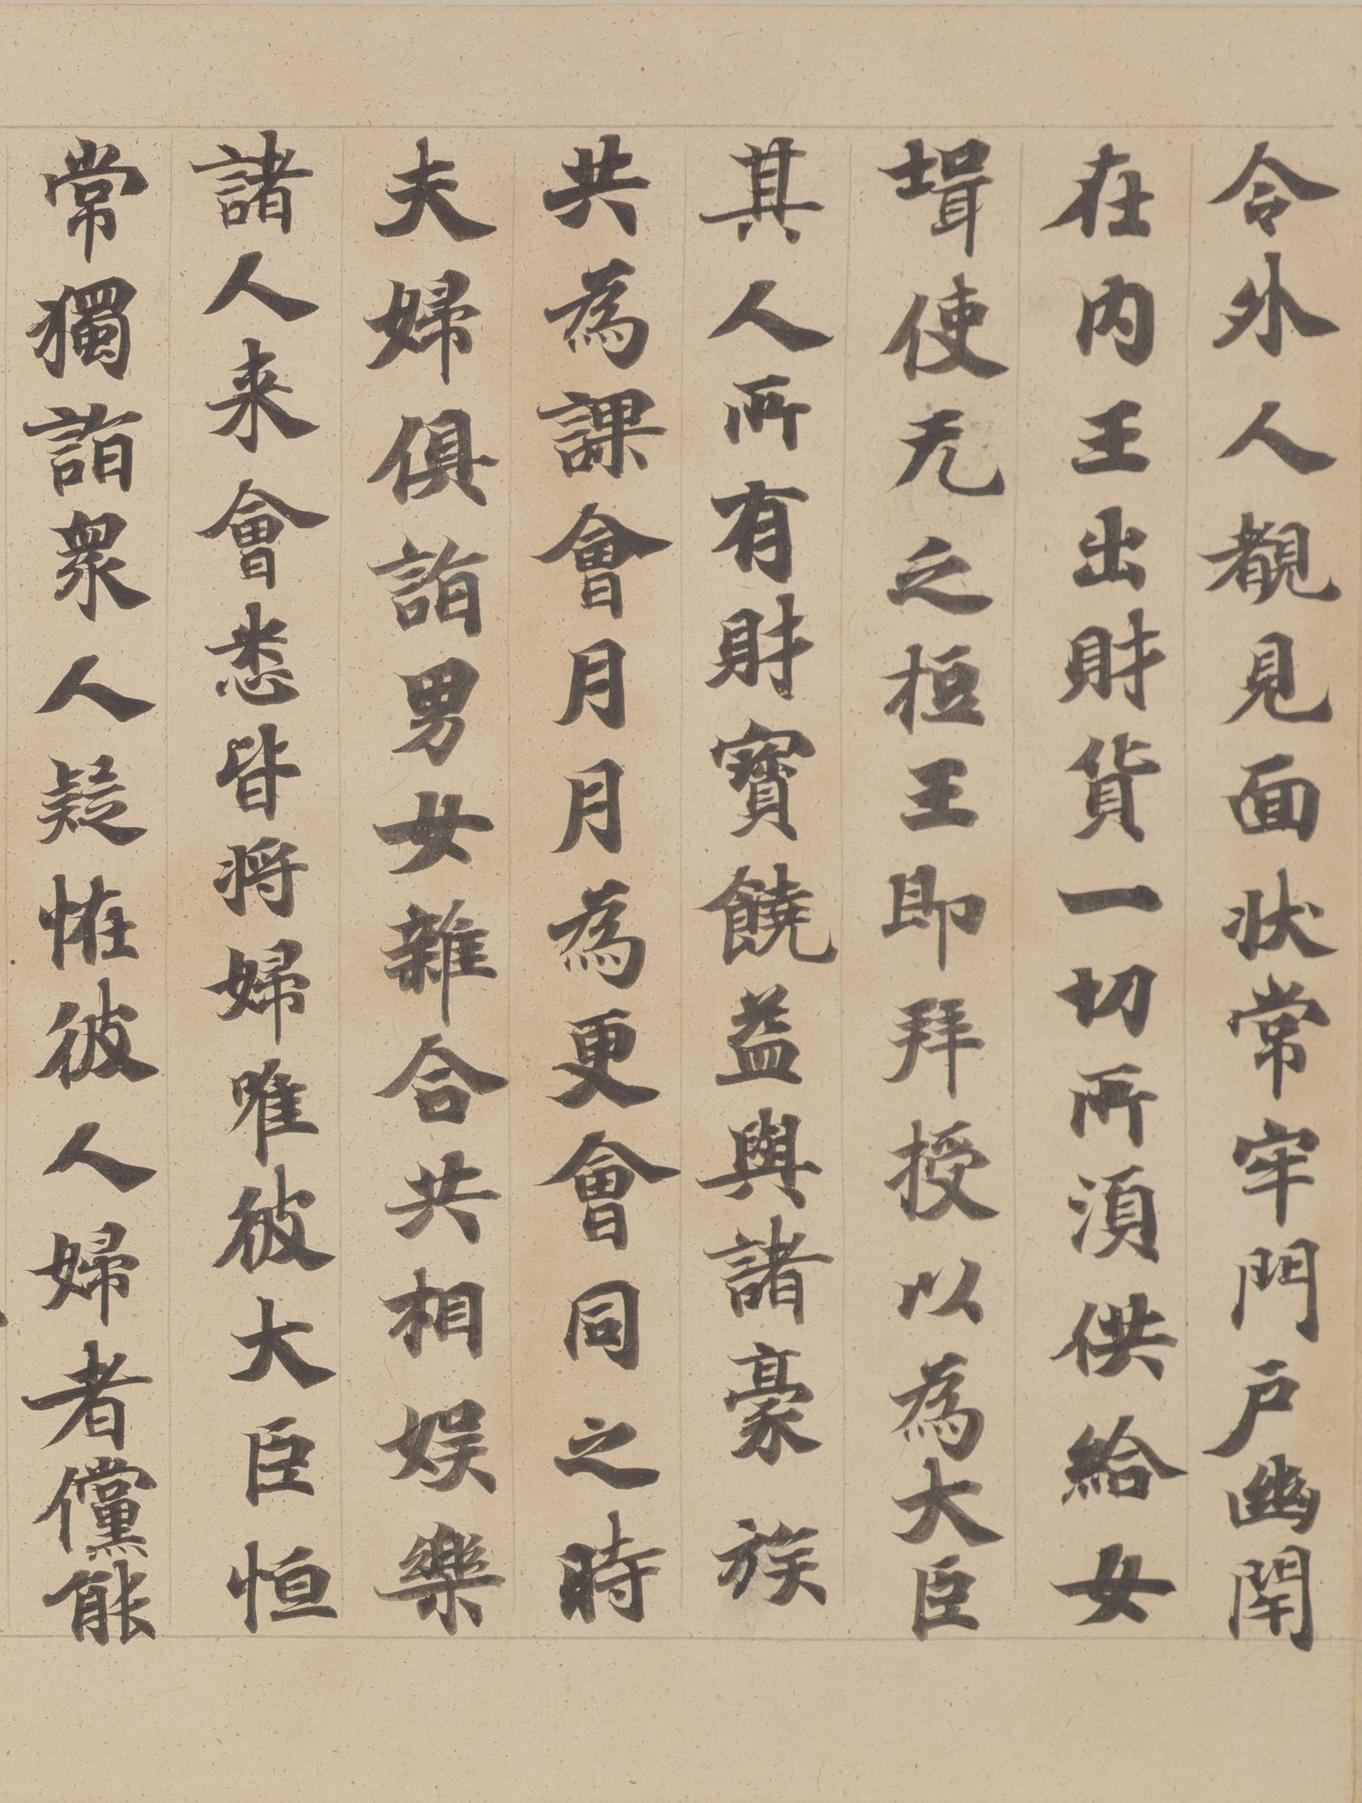 令外人覩見面状常牢門戶幽閇
在内王出財貨一切所湏供給女
壻使无乏短王即拜授以為大臣
其人所有財寶饒益與諸豪族
共為課會月月為更會同之時
夫婦俱詣男女雜合共相娯樂
諸人来會悉皆将婦唯彼大臣恒
常獨詣衆人疑恠彼人婦者儻能